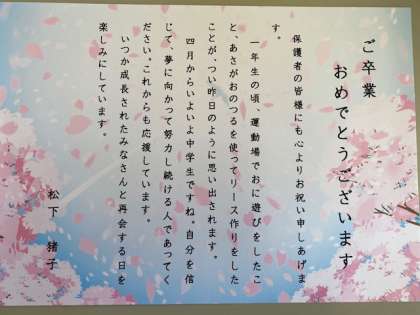 ご卒業
おめでとうございます
保護者の皆様にも心よりお祝い申しあげま
す。
一年生の頃、運動場でおに遊びをしたこ
と、あさがおのつるを使ってリース作りをした
ことが、つい昨日のように思い出されます。
四月からいよいよ中学生ですね。自分を信
じて、夢に向かって努力し続ける人であってく
ださい。これからも応援しています。
いつか成長されたみなさんと再会する日を
楽しみにしています。
松下　猪子